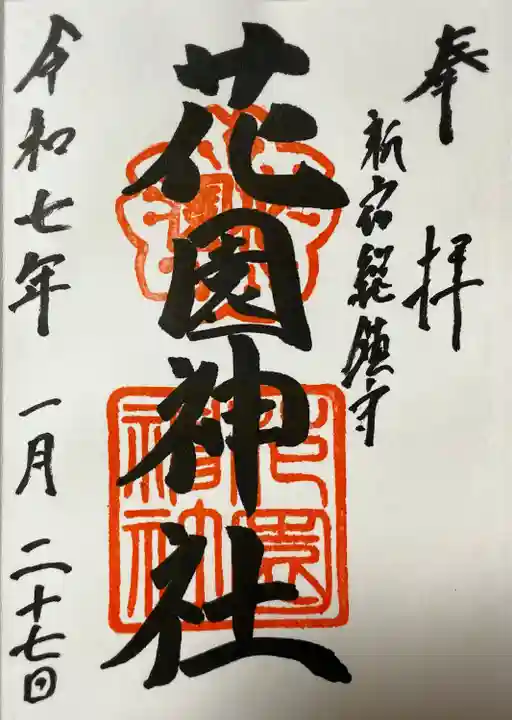 奉拝
新宿総鎮守
花園神社
花園神社
令和七年 一月 二十七日